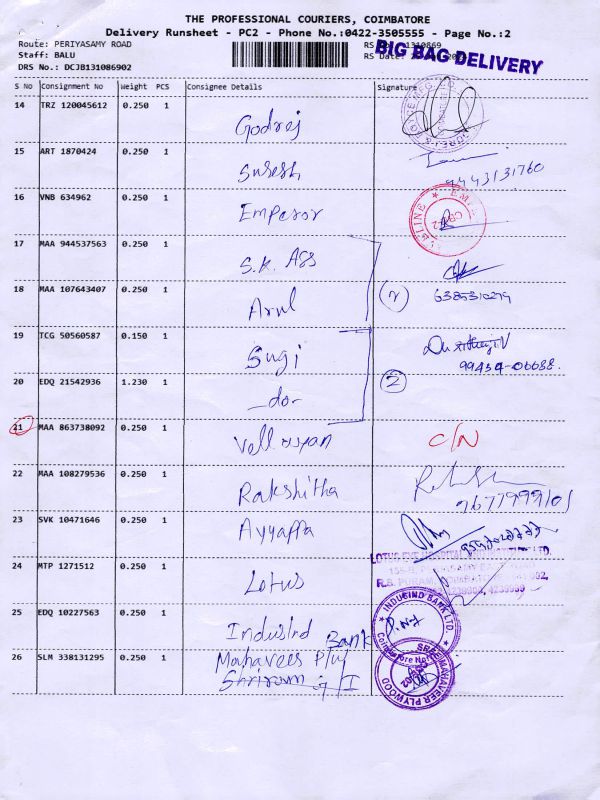 THE PROFESSIONAL COURIERS, COIMBATORE
Delivery Runsheet - PC2 - Phone No.:0422-3505555 - Page No.:2
Route: PERIYASAMY ROAD
Staff: BALU
DRS No.: DCJB131086902
RS Date:
BIG BAG DELIVERY
S No Consignment No Weight PCS Consignee Details Signature
14 TRZ 120045612 0.250 1 Godrej
15 ART 1870424 0.250 1 Suresh 9443131760
16 VNB 634962 0.250 1 Emperor
17 MAA 944537563 0.250 1 S.K. Ass
18 MAA 107643407 0.250 1 Arul (2) 6385310279
19 TCG 50560587 0.150 1 Sugi 99434-06688
20 EDQ 21542936 1.230 1 -do- (2)
21 MAA 863738092 0.250 1 C/N
22 MAA 108279536 0.250 1 Rakshitha 9677999101
23 SVK 10471646 0.250 1 Ayyappa
24 MTP 1271512 0.250 1 Lotus
LOTUS EYE HOSPITAL LTD.
R.S. PURAM, COIMBATORE
25 EDQ 10227563 0.250 1 IndusInd Bank
INDUSIND BANK LTD.
Coimbatore
26 SLM 338131295 0.250 1 Mahaveer Ply
Shriram
SREE MAHAVEER PLYWOOD